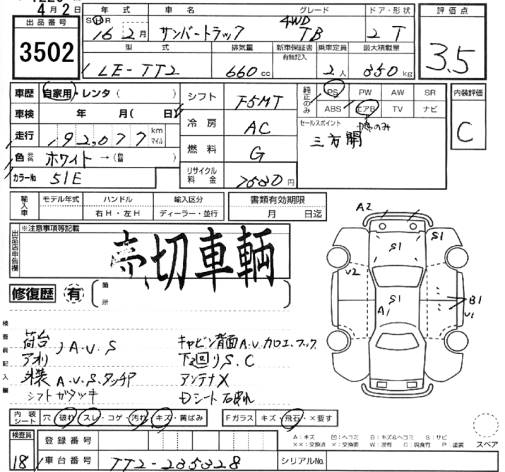 4月2日
出品番号
3502
年式 車名 グレード ドア・形状
S H 16年2月 サンバートラック 4WD TB 2T
型式 排気量 新車保証書 有無記入 乗車定員 最大積載量
LE-TT2 660cc 2人 350kg
評価点
3.5
車歴 自家用・レンタ ( )
車検 年 月( 日)
走行 92,077 km マイル
色 ホワイト→( )
カラーNo 51E
シフト F5MT
冷房 AC
燃料 G
リサイクル料金 円
純正のみ
PS PW AW SR
ABS エアB TV ナビ
セールスポイント
三方開
内装評価
C
輸入車
モデル年式 ハンドル 輸入区分
右H・左H ディーラー・並行
書類有効期限
月 日迄
※注意事項等記載
売切車輌
修復歴 有 箇所
検査員記入欄
荷台 A.V.S キャビン背面A.V.カロエ.フック
アオリ 下廻りS.C
外装 A.V.S.タッチP アンテナX
シフトガタツキ Dシート
A2
S1
S1
V2
S1
A1
B1
V1
内装シート 穴・破れ・スレ・コゲ・汚れ・キズ・黄ばみ
Fガラス キズ・飛石・×要す
検査員
18
登録番号
車台番号 TT2-235328 シリアルNo.
A:キズ B:ヘコミ B:キズ&ヘコミ S:サビ
××:交換済 ×:交換 W:波有 C:腐食 P:塗装
スペア